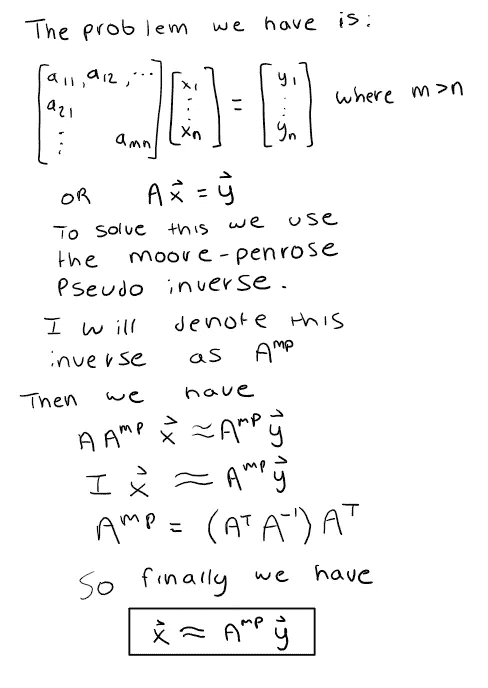 The problem we have is:
[a11, a12, ...
a21
⋮ amn] [x1
⋮
xn] = [y1
⋮
yn] where m>n
OR A x⃗ = y⃗
To solve this we use
the moore-penrose
Pseudo inverse.
I will denote this
inverse as A^mp
Then we have
A A^mp x⃗ ≈ A^mp y⃗
I x⃗ ≈ A^mp y⃗
A^mp = (A^T A^-1) A^T
So finally we have
x⃗ ≈ A^mp y⃗